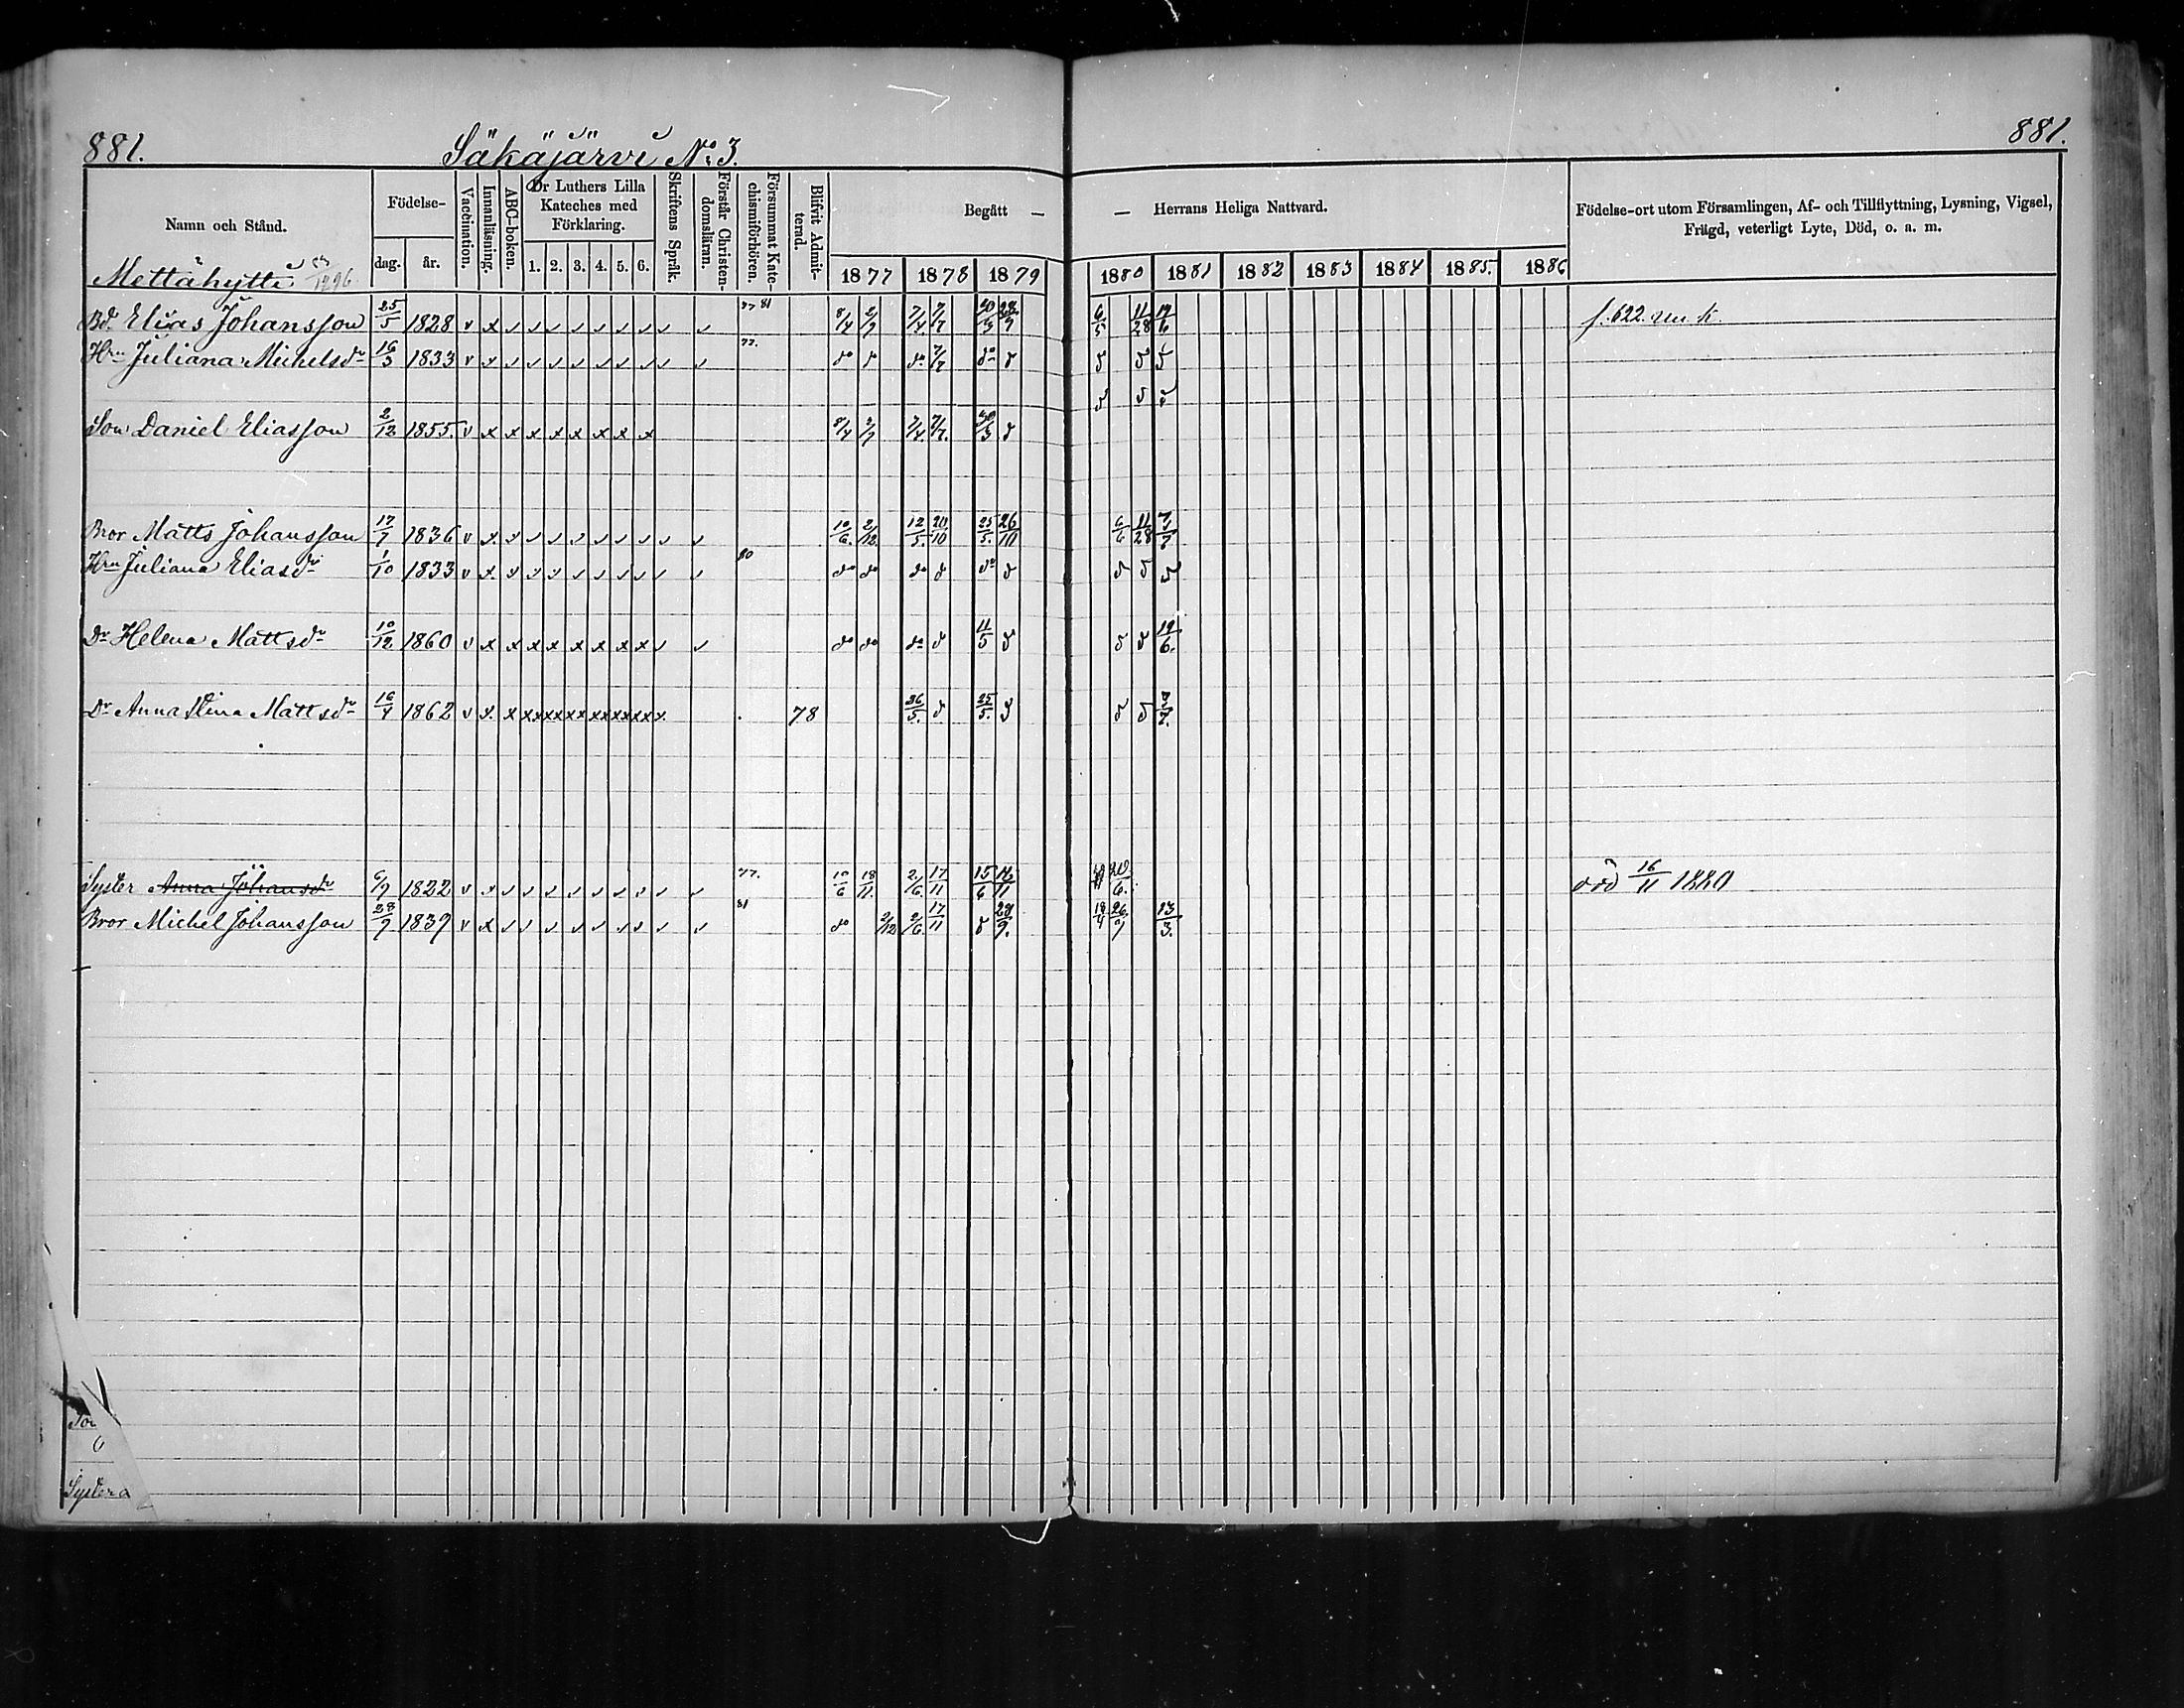 881.
Säkäjärvi No 3.
881.
Namn och Stånd.
Födelse-
dag.
år.
Vaccination.
Innanläsning.
ABC-boken.
Dr Luthers Lilla Kateches med Förklaring.
1. 2. 3. 4. 5. 6.
Skriftens Språk.
Förstår Christendomsläran.
Försummat Katechismiförhören.
Blifvit Admitterad.
Begått — — Herrans Heliga Nattvard.
1877 1878 1879 1880 1881 1882 1883 1884 1885. 1886
Födelse-ort utom Församlingen, Af- och Tillflyttning, Lysning, Vigsel,
Frägd, veterligt Lyte, Död, o. a. m.
Mettähytti 1296
Bd. Elias Johansson 25/5 1828 v x 77 81 8/4 7/4 7/7 11/28 f. 622.
Hru Juliana Michelsdr 16/3 1833 v 77. do do 7/7 do
Son Daniel Eliasson 2/12 1855. v x x x x x x x x 7/4 7/7.
Bror Matts Johansson 17/7 1836 v x 10/6. 2/12. 12/5. 20/10 25/5. 26/10 11/28
Hru Juliana Eliasdr 1/10 1833 v x 80 do do do do
Dr Helena Mattsdr 10/12 1860 v x x x x x x x x do do do 11/5 19/6.
Dr Anna Stina Mattsdr 16/4 1862 v x x xx xx xx xx xx xx 78 26/5. 25/5. 7/7.
Syster Anna Johansdr 6/9 1822 v 77. 10/6 18/11. 2/6. 17/11 15/6 20/6. död 16/11 1880
Bror Michel Johansson 28/9 1839 v x 81 do 2/12 2/6. 17/11 28/9. 18/4 26/9 13/3.
Son
Systera